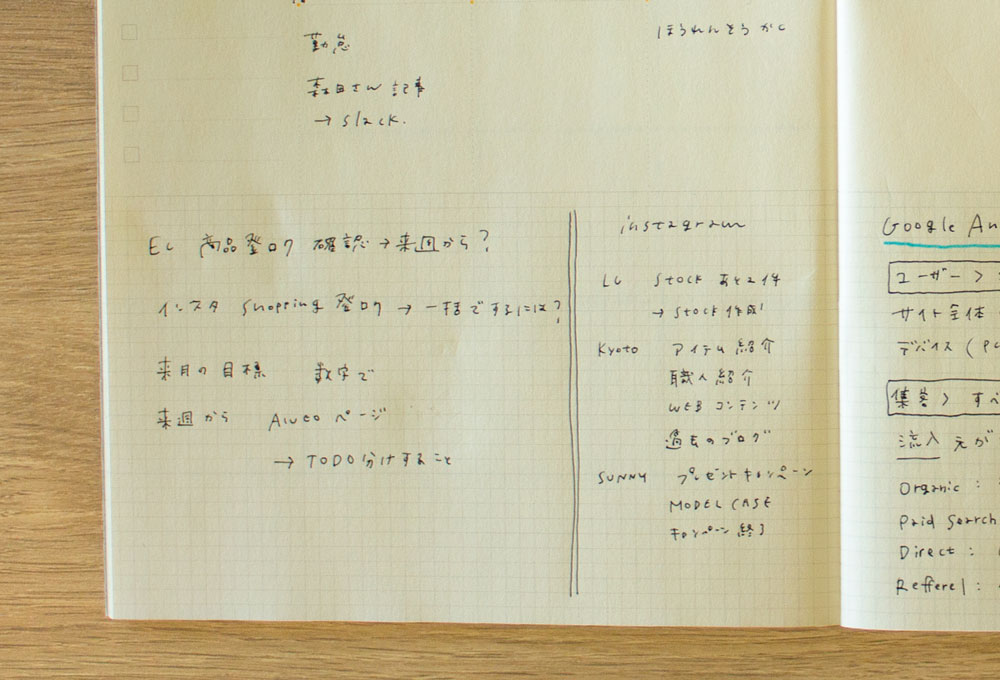 勤怠
森田さん 記事
→ slack.
ほうれんそう かし
EC 商品登ロク 確認→来週から?
インスタ Shopping 登ロク → 一括でするには?
来月の目標 数字で
来週から ページ
→ TODO分けすること
instagram
LC Stock あと2件
→ Stock 作成!
Kyoto アイテム紹介
職人紹介
WEB コンテンツ
過去のブログ
SUNNY プレゼントキャンペーン
MODEL CASE
キャンペーン 終了
Google An
ユーザー >
サイト全体
デバイス (PC
集客 > すべ
流入 元が
Organic :
Paid Search
Direct :
Refferel :